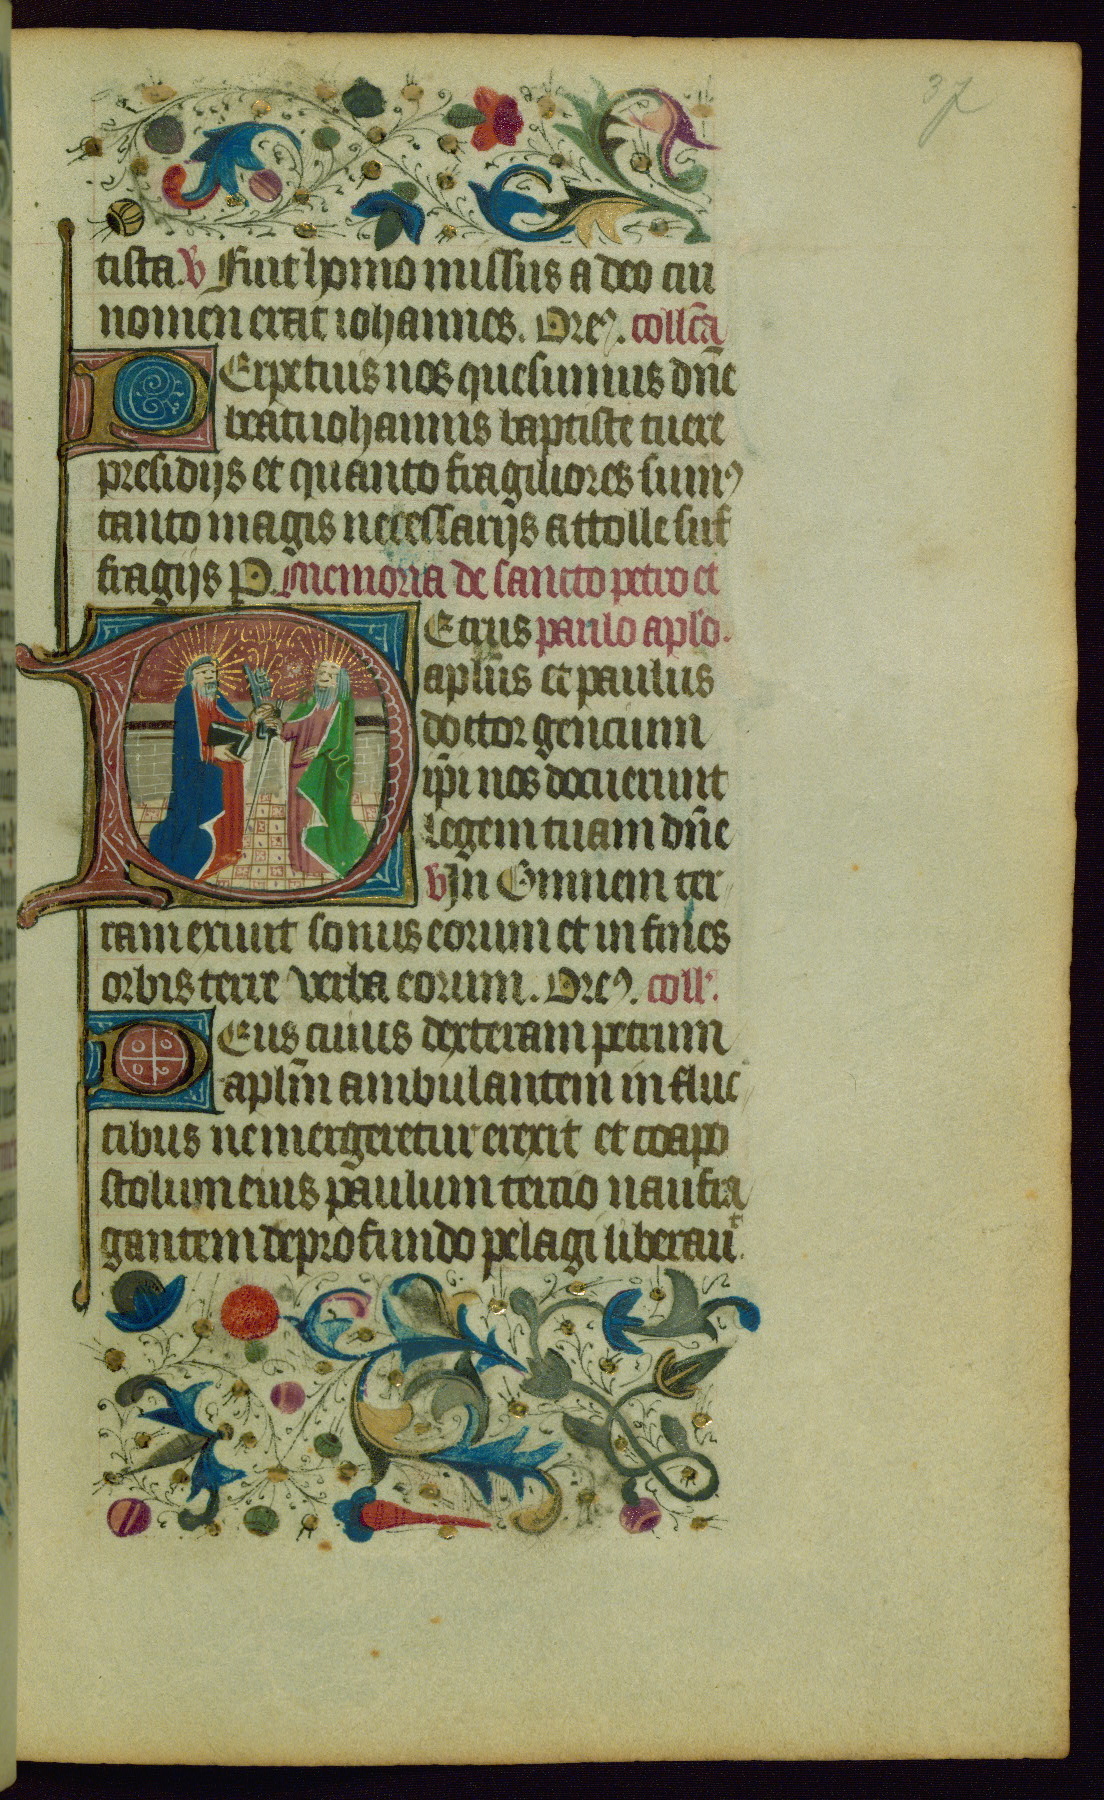 37
tista. V Fuit homo missus a deo cui
nomen erat iohannes. Oreꝰ. collc̄a
PErpetuis nos quesumus dn̄e
beati iohannis baptiste tuere
presidijs et quanto fragiliores sumꝰ
tanto magis necessarijs attolle suf
fragijs P. Memoria de sancto petro et
PEtrus paulo aplo.
apl̄us et paulus
doctor gencium
ip̄i nos docuerunt
legem tuam dn̄e
V In Omnem ter
ram exiuit sonus eorum et in fines
orbis terre verba eorum. Oreꝰ. coll
DEus cuius dexteram petrum
apl̄m ambulantem in fluc
tibus ne mergeretur erexit et coapo
stolum eius paulum tercio naufra
gantem de profundo pelagi liberauᵗ.